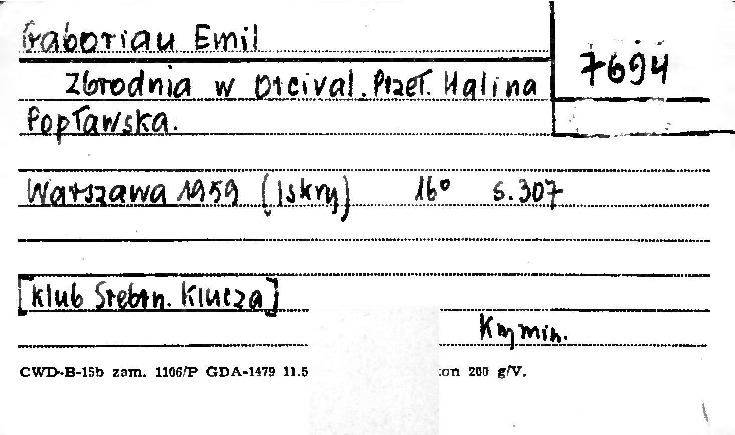 Gaboriau Emil
7694
Zbrodnia w Orcival. Przeł. Halina
Popławska.
Warszawa 1959 (Iskry) 16° s. 307
[Klub Srebrn. Klucza]
Krymin.
CWD-B-15b zam. 1106/P GDA-1479 11.5 on 200 g/V.